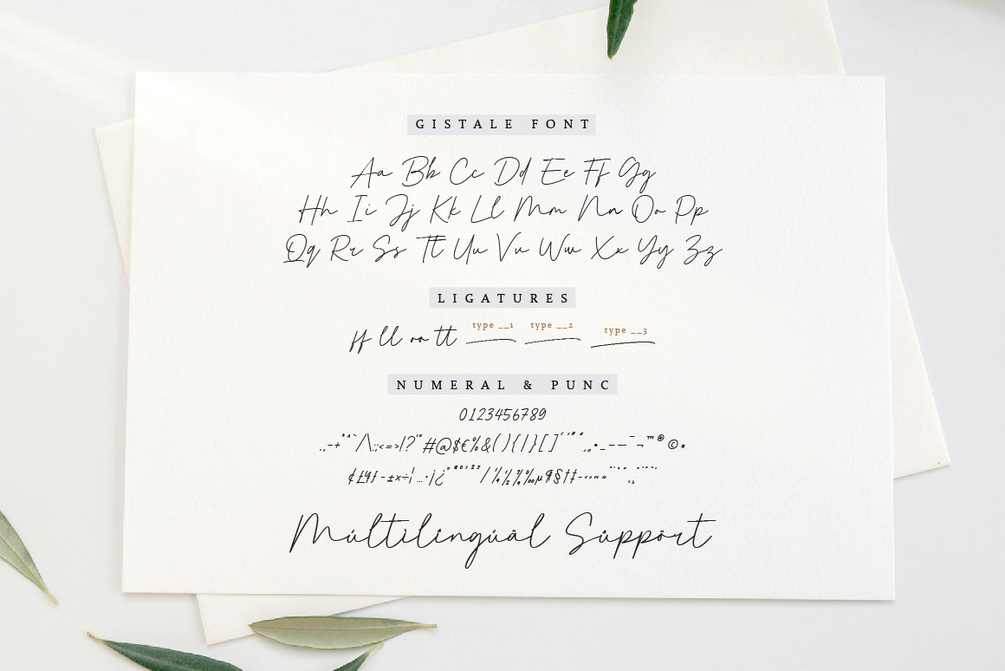 GISTALE FONT
Aa Bb Cc Dd Ee Ff Gg
Hh Ii Jj Kk Ll Mm Nn Oo Pp
Qq Rr Ss Tt Uu Vv Ww Xx Yy Zz
LIGATURES
ff ll oo tt type __1 type __2 type __3
NUMERAL & PUNC
0123456789
#@$€%&(){|}[]
Múltilingúäl Süppört